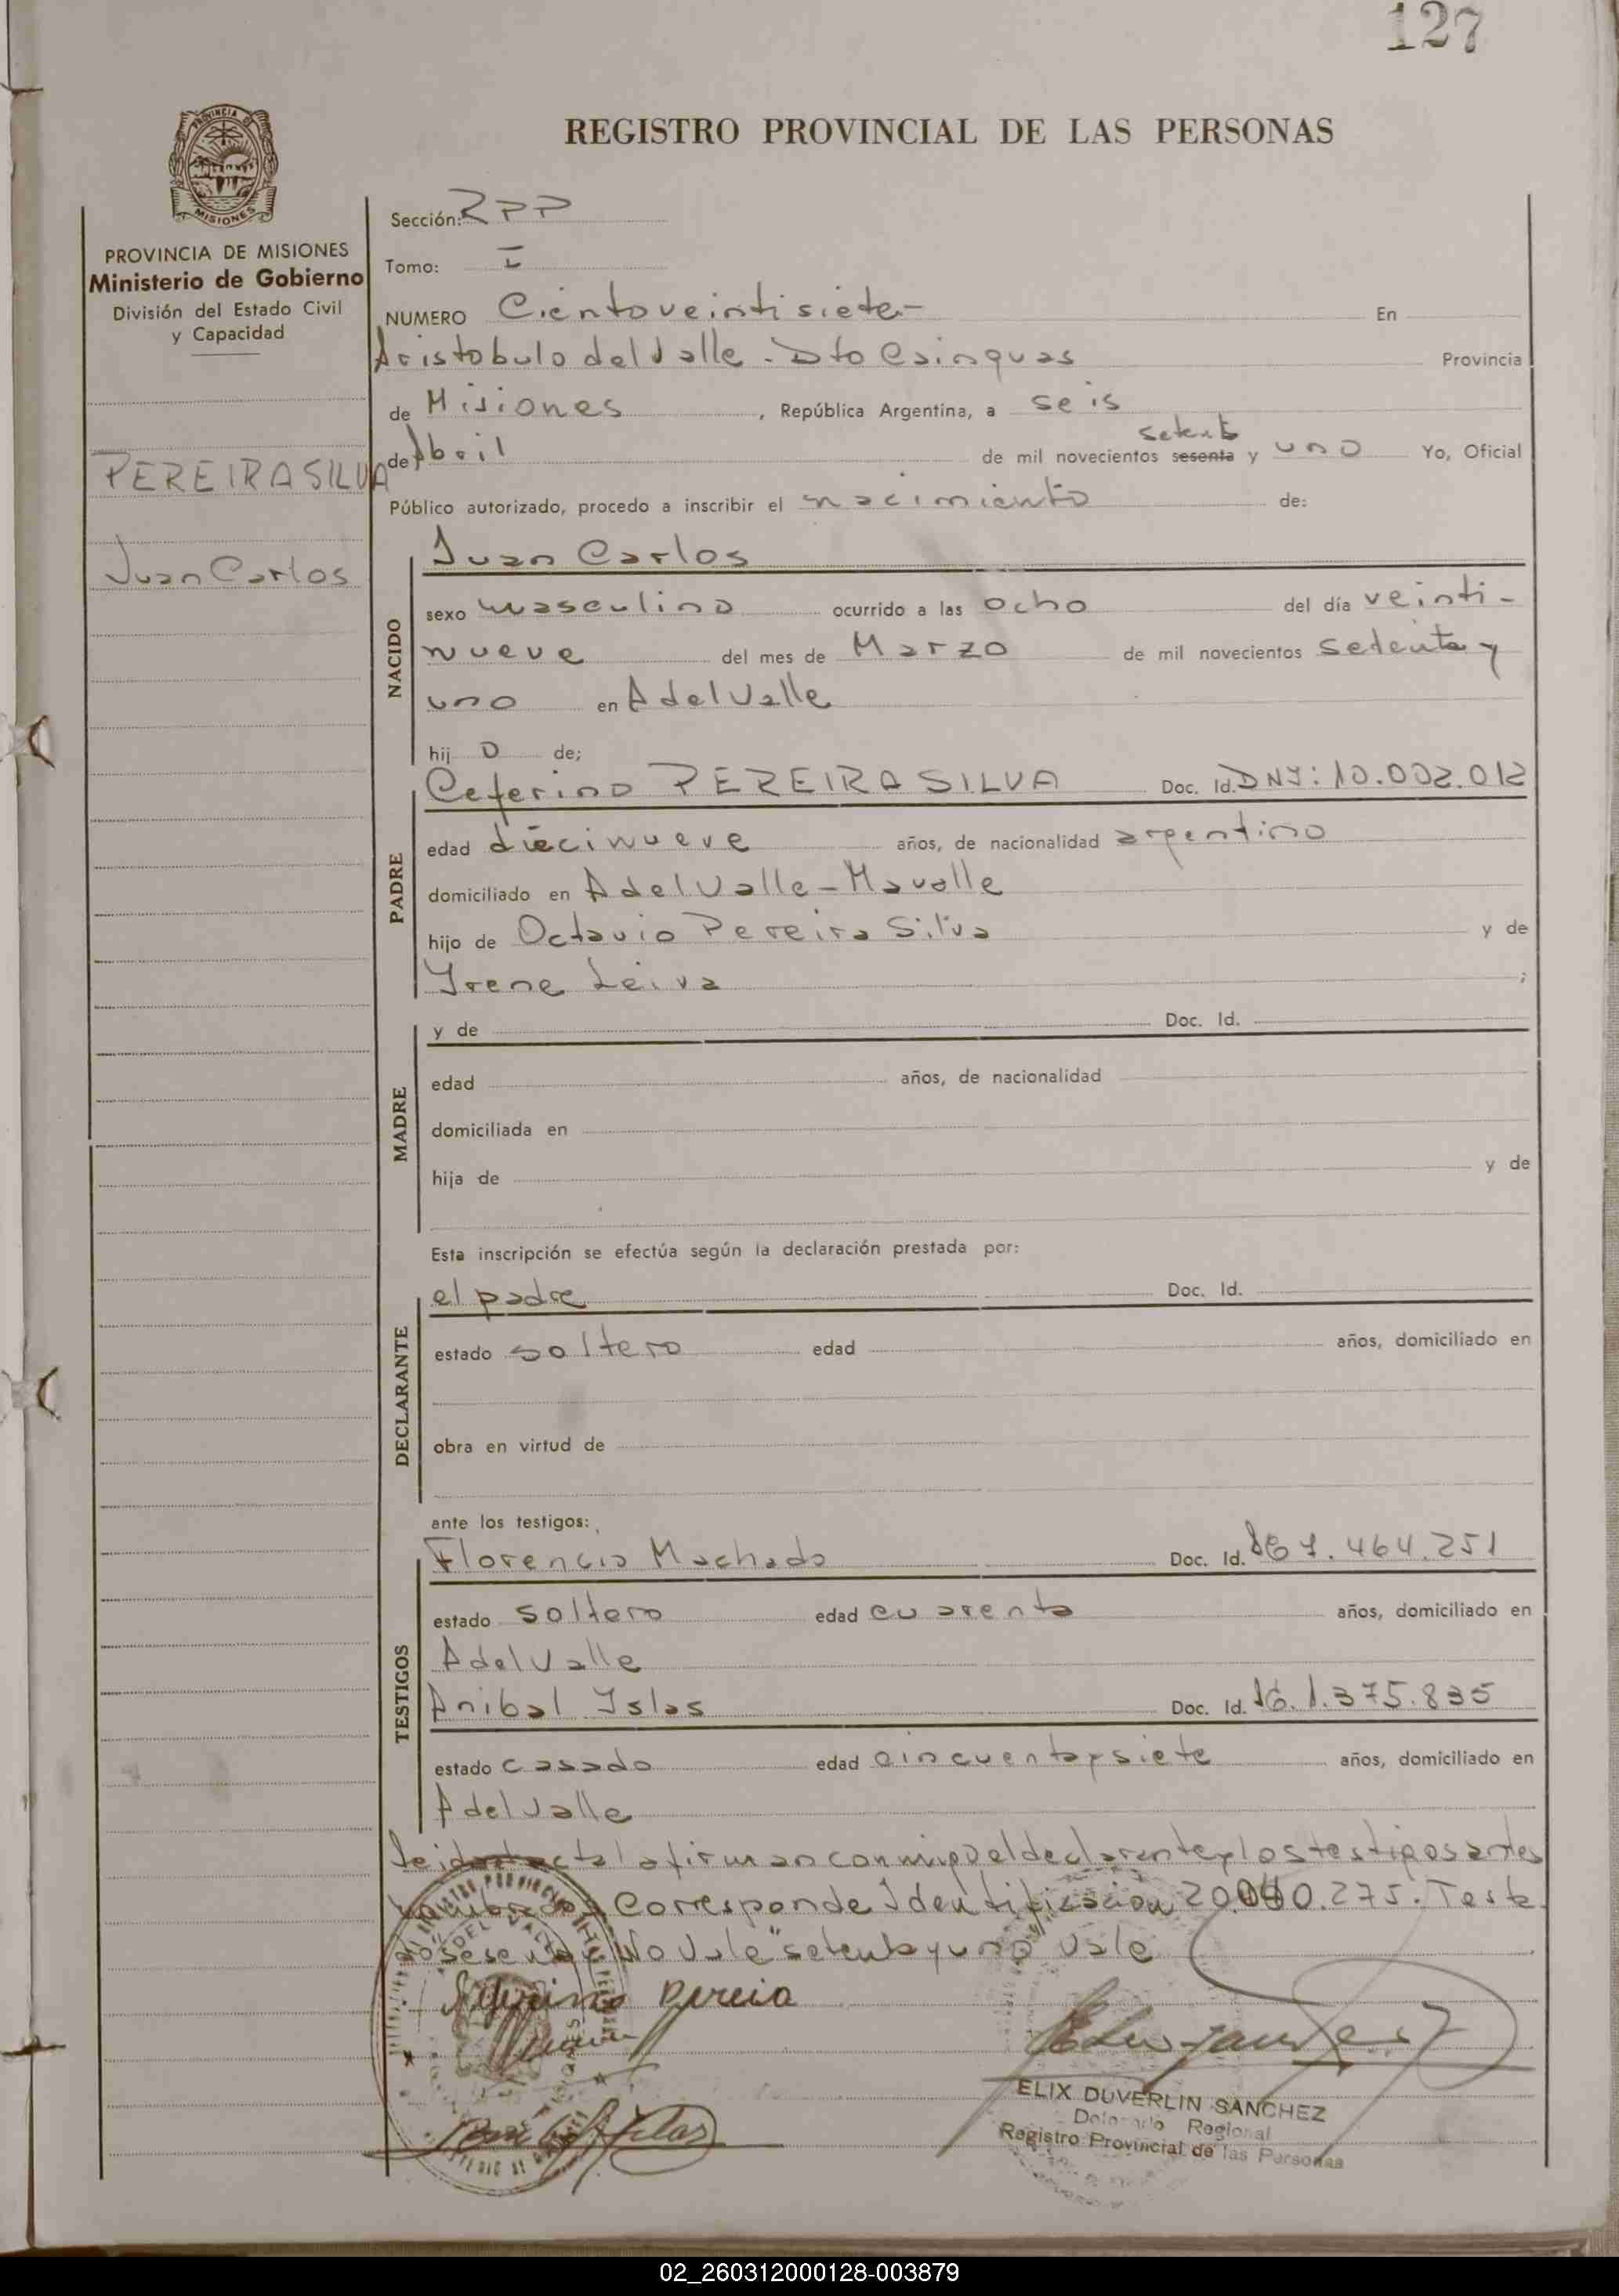 127
REGISTRO PROVINCIAL DE LAS PERSONAS
PROVINCIA DE MISIONES
Ministerio de Gobierno
División del Estado Civil
y Capacidad
PEREIRA SILVA
Juan Carlos
Sección: RPP
Tomo: I
NUMERO Ciento veintisiete- En
Aristobulo del Valle - Dto Cainguas Provincia
de Misiones, República Argentina, a seis
setenta
de Abril de mil novecientos sesenta y uno Yo, Oficial
Público autorizado, procedo a inscribir el nacimiento de:
NACIDO
Juan Carlos
sexo masculino ocurrido a las ocho del día veinti-
nueve del mes de Marzo de mil novecientos setenta y
uno en A del Valle
hij o de;
PADRE
Ceferino PEREIRA SILVA Doc. Id. DNI: 10.002.012
edad diecinueve años, de nacionalidad argentino
domiciliado en A del Valle - Mavalle
hijo de Octavio Pereira Silva y de
Irene Leiva ;
MADRE
y de Doc. Id.
edad años, de nacionalidad
domiciliada en
hija de y de
Esta inscripción se efectúa según la declaración prestada por:
DECLARANTE
el padre Doc. Id.
estado soltero edad años, domiciliado en
obra en virtud de
ante los testigos:
TESTIGOS
Florencio Machado Doc. Id. 7.464.251
estado soltero edad cuarenta años, domiciliado en
A del Valle
Anibal Islas Doc. Id. 1.375.835
estado casado edad cincuenta y siete años, domiciliado en
A del Valle
Leida el acta la firman conmigo el declarante y los testigos antes
nombrados Corresponde Identificacion 275. Testa
do "sesenta" No Vale "setenta y uno" Vale
ELIX DUVERLIN SANCHEZ
Delegado Regional
Registro Provincial de las Personas
02_260312000128-003879